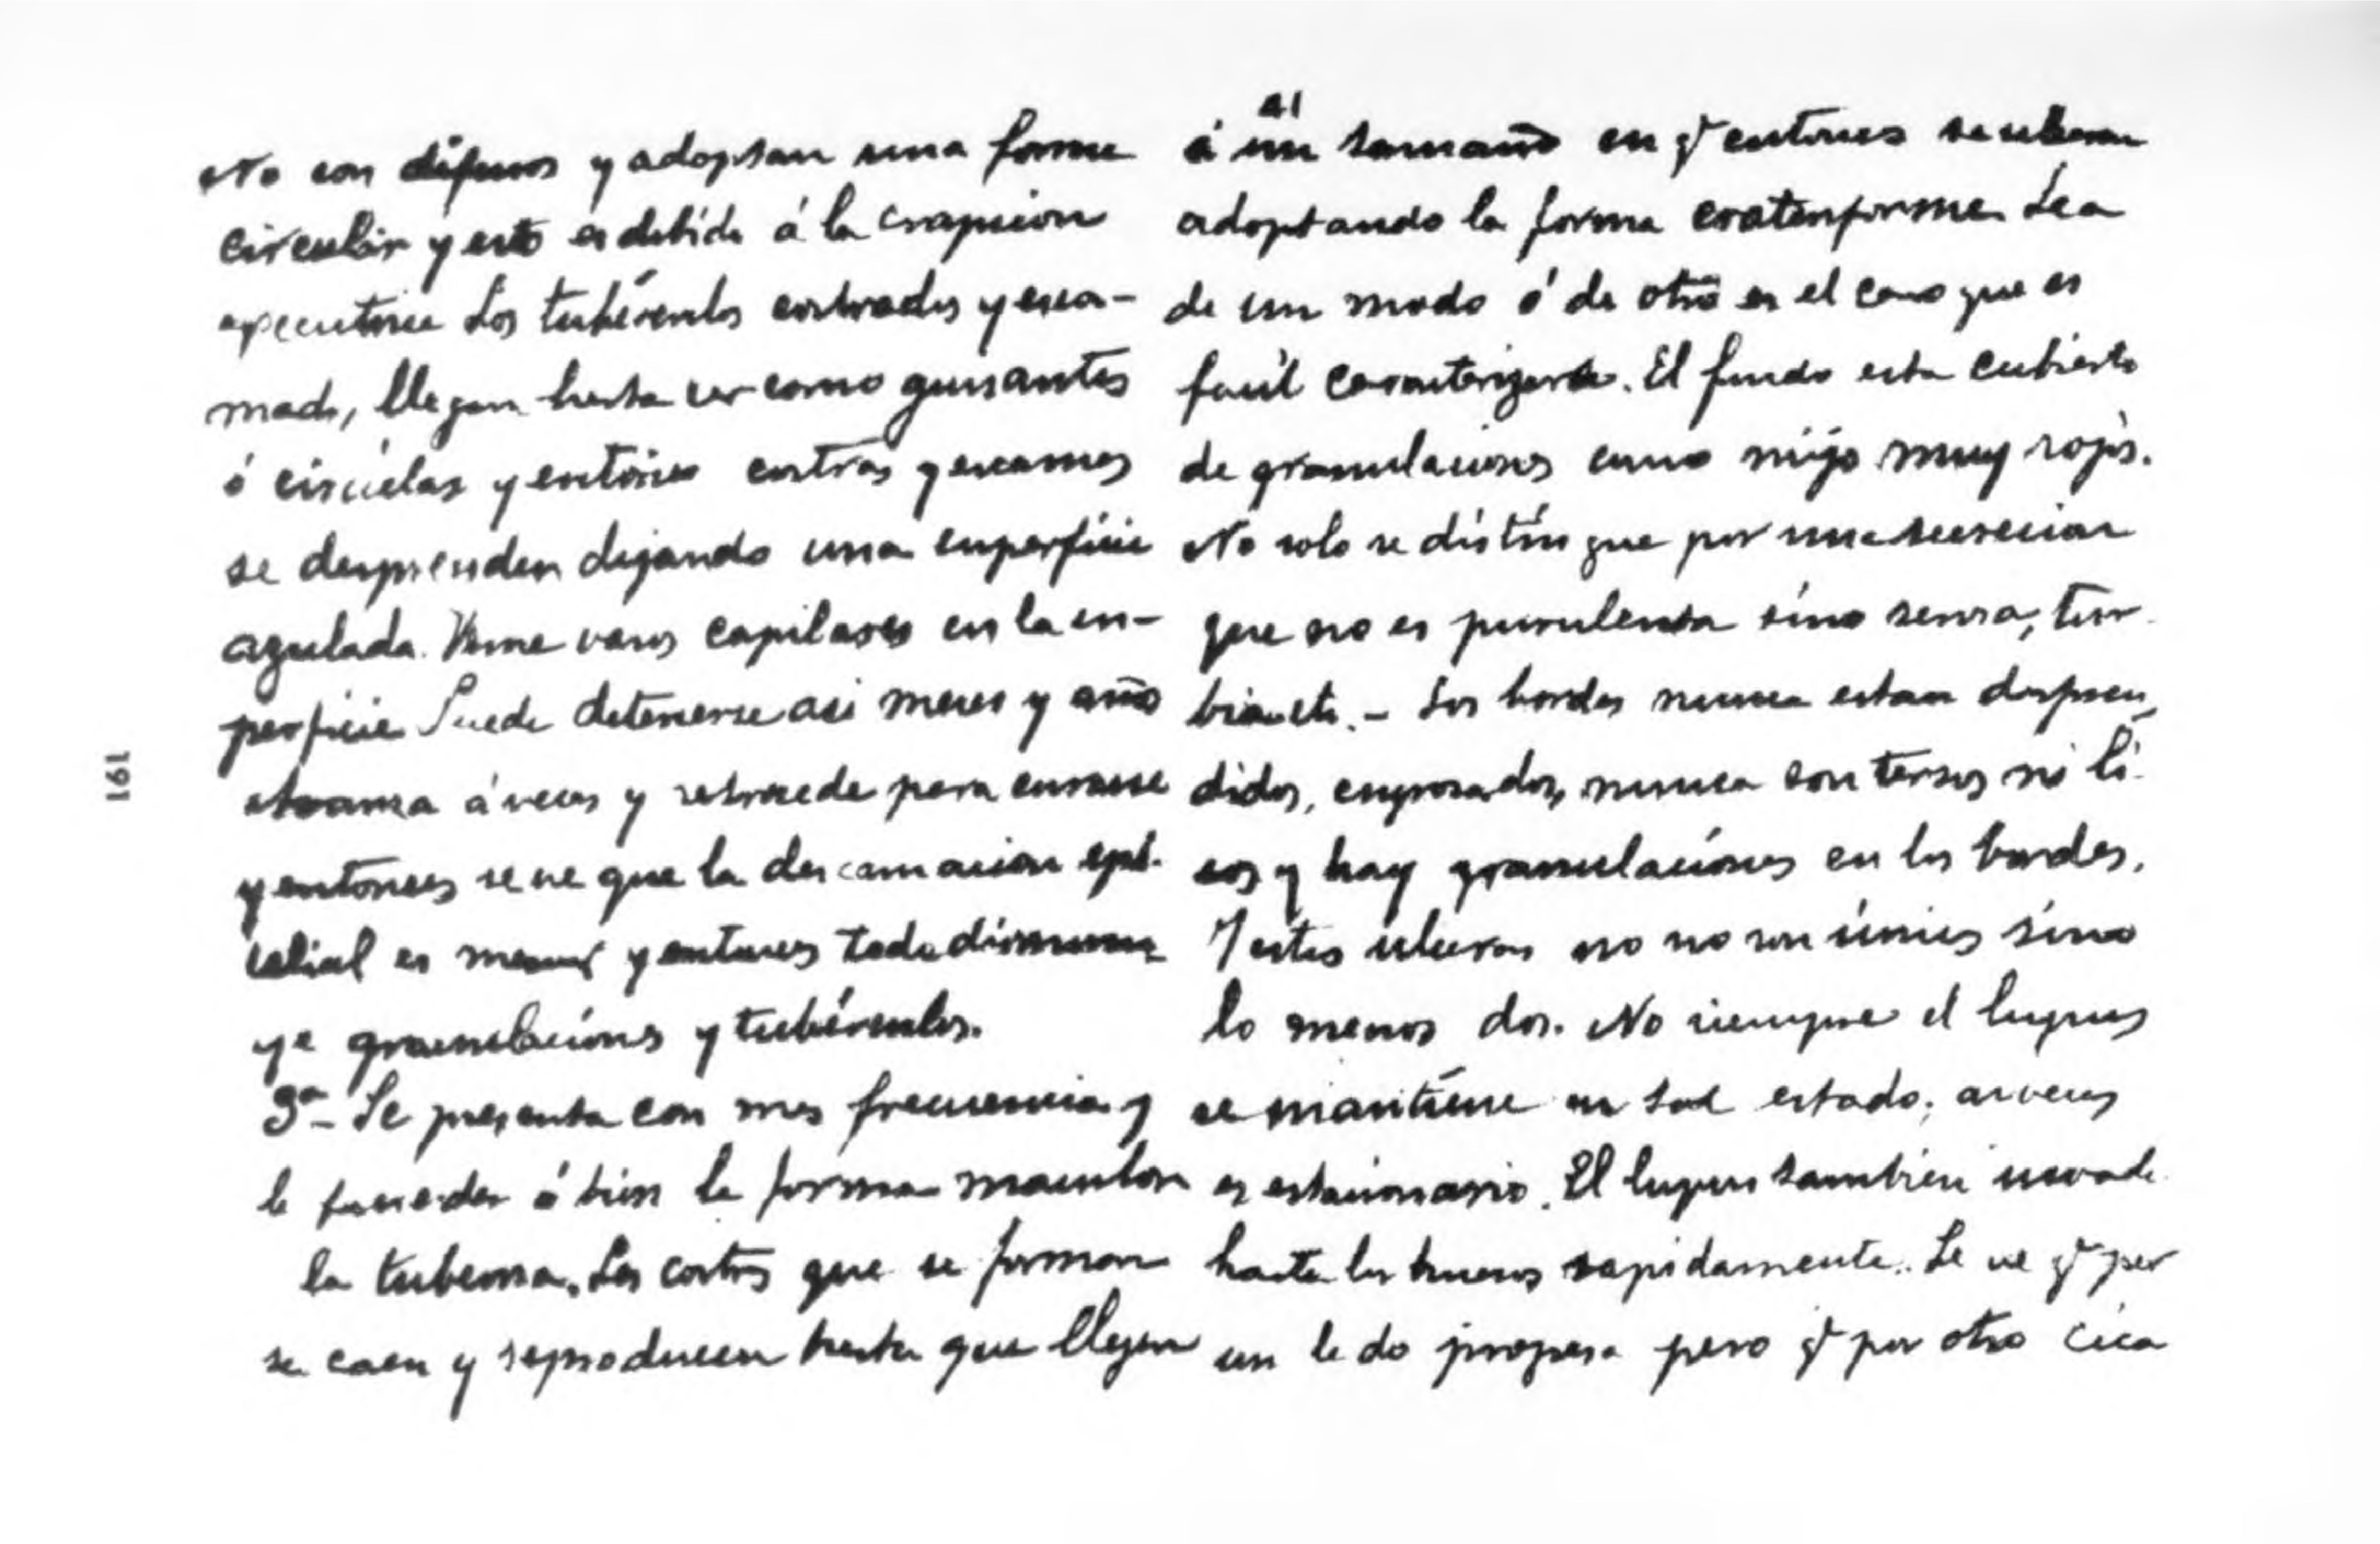 No son difusos y adoptan una forma
circular y esto es debido á la erupcion
Los tubérculos costrados y esca-
mado, llegan hasta ser como guisantes
ó ciruelas y entónces costras y escamas
se desprenden dejando una superficie
azulada. Vense vasos capilares en la su-
perficie. Puede detenerse asi meses y años
avanza á veces y retrocede para curarse
y entonces se ve que la descamacion epi-
telial es menor y entonces todo disminuye
ya granulaciones y tubérculos.
3ª- Se presenta con mas frecuencia y
le suceder ó bien la forma maculosa
la tuberosa. Las costras que se forman
se caen y reproducen hasta que llegan
41
á un tamaño en q entonces se ulceran
adoptando la forma crateriforme. Sea
de un modo ó de otro es el caso que es
facil caracterizarla. El fondo esta cubierto
de granulaciones como mijo muy rojas.
No solo se distingue por una secrecion
que no es purulenta sino serosa, tur-
bia etc. - Los bordes nunca estan despren
didos, engrosados, nunca son tersos ni li-
sos y hay granulaciones en los bordes.
Y estas ulceras no no son únicas sino
lo menos dos. No siempre el lupus
se mantiene en tal estado; a veces
es estacionario. El lupus tambien invade
hasta los huesos rapidamente. Se ve q por
un lado progresa pero q por otro cica
191